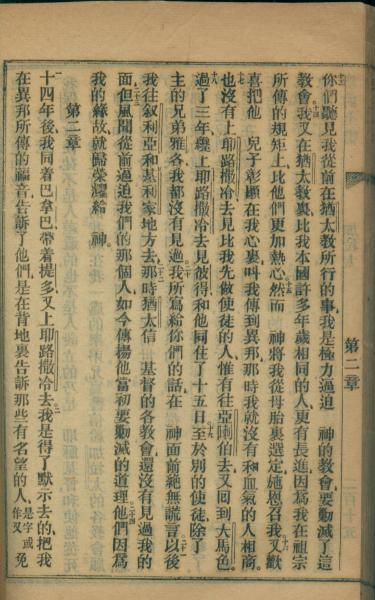 第二章
十三
你們聽見我從前在猶太教所行的事我是極力過迫 神的教會要勦滅了這
十四
教會我又在猶太教裏比我本國許多年歲相同的人更有長進因爲我在祖宗
十五 十六
所傳的規矩上比他們更加熱心然而 神將我從母胎裏選定施恩召我又歡
十七
喜把他 兒子彰顯在我心裏叫我傳到異邦那時我就沒有和血氣的人相商
十八
也沒有上耶路撒冷去見比我先做使徒的人惟有往亞喇伯去又回到大馬色
十九
過了三年纔上耶路撒冷去見彼得和他同住了十五日至於別的使徒除了
二十 二十一
主的兄弟雅各我都沒有見過我所寫給你們的話在 神面前絕無謊言以後
二十二
我往叙利亞和基利家地方去那時猶太信 基督的各教會還沒有見過我的
二十三
面但風聞從前過迫我們的那個人如今傳揚他當初要勦滅的道理他們因爲
二十四
我的緣故就歸榮耀給 神
第二章
一 二
十四年後我同着巴拿巴帶着提多又上耶路撒冷去我是得了默示去的把我
在異邦所傳的福音告訴了他們是在背地裏告訴那些有名望的人是字或作叉免